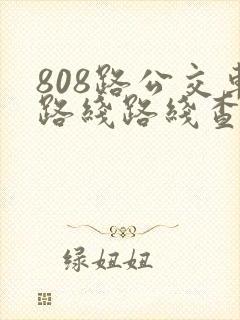 808路公交车
路线路线查
绿妞妞